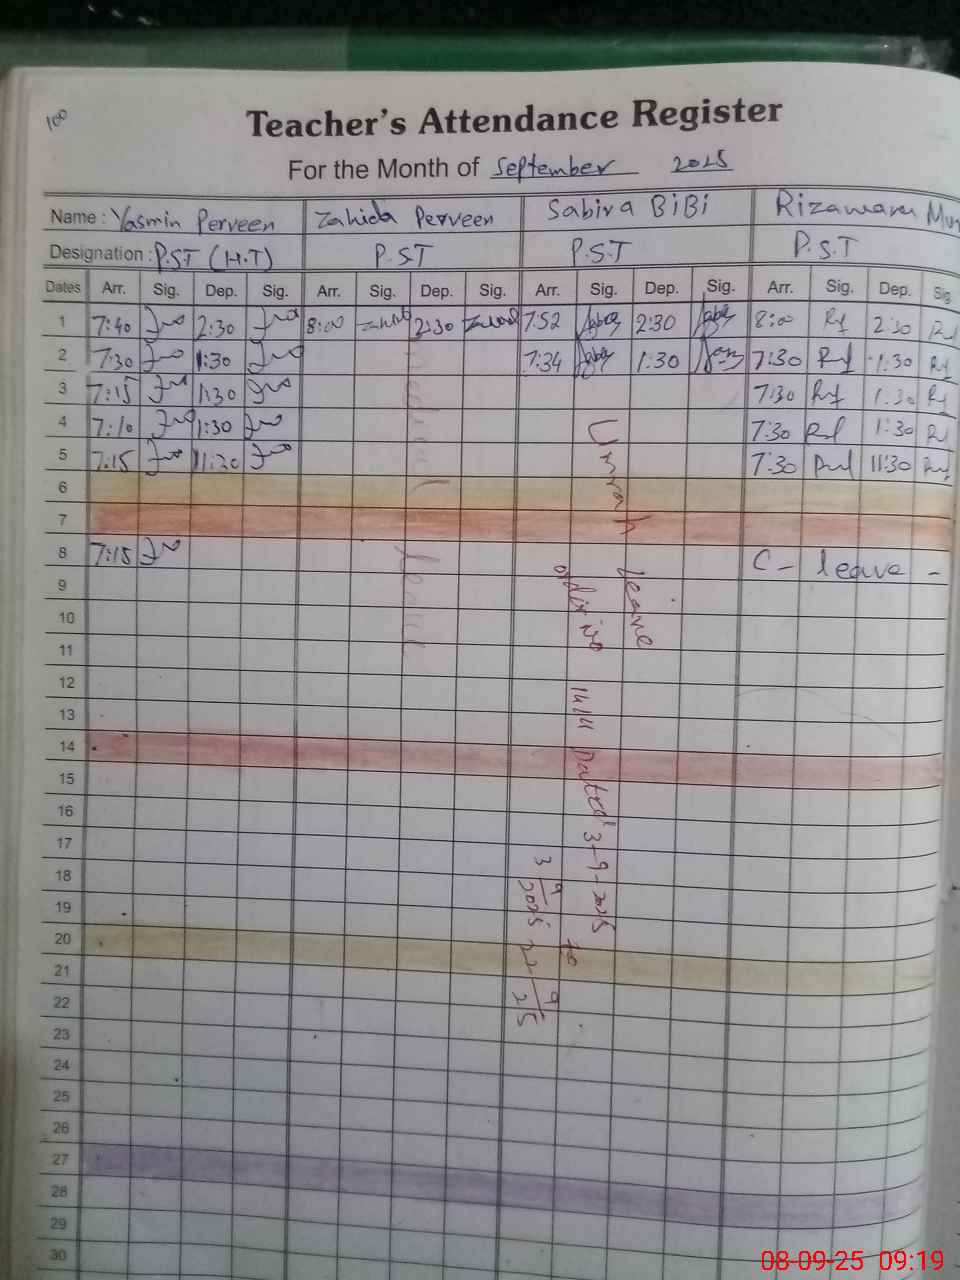 100
Teacher's Attendance Register
For the Month of September 2025
Name : Yasmin Perveen Zahida Perveen Sabira BiBi Rizawana
Designation : P.S.T (H.T) P.S.T P.S.T P.S.T
Dates Arr. Sig. Dep. Sig. Arr. Sig. Dep. Sig. Arr. Sig. Dep. Sig. Arr. Sig. Dep. Sig.
1 7:40 2:30 8:00 Zahida 2:30 Zahida 7:52 2:30 8:00 2:30
2 7:30 1:30 7:34 1:30 7:30 1:30
3 7:15 1:30 7:30 1:30
4 7:10 1:30 7:30 1:30
5 7:15 11:30 7:30 11:30
6
7
8 7:15 C- leave -
9
10
11
12
13
14
15
16
17
18
19
20
21
22
23
24
25
26
27
28
29
30
medical leave
Umrah leave
order no 1414 Dated 3-9-2025
3 9 2025 to 22 9 25
08-09-25 09:19